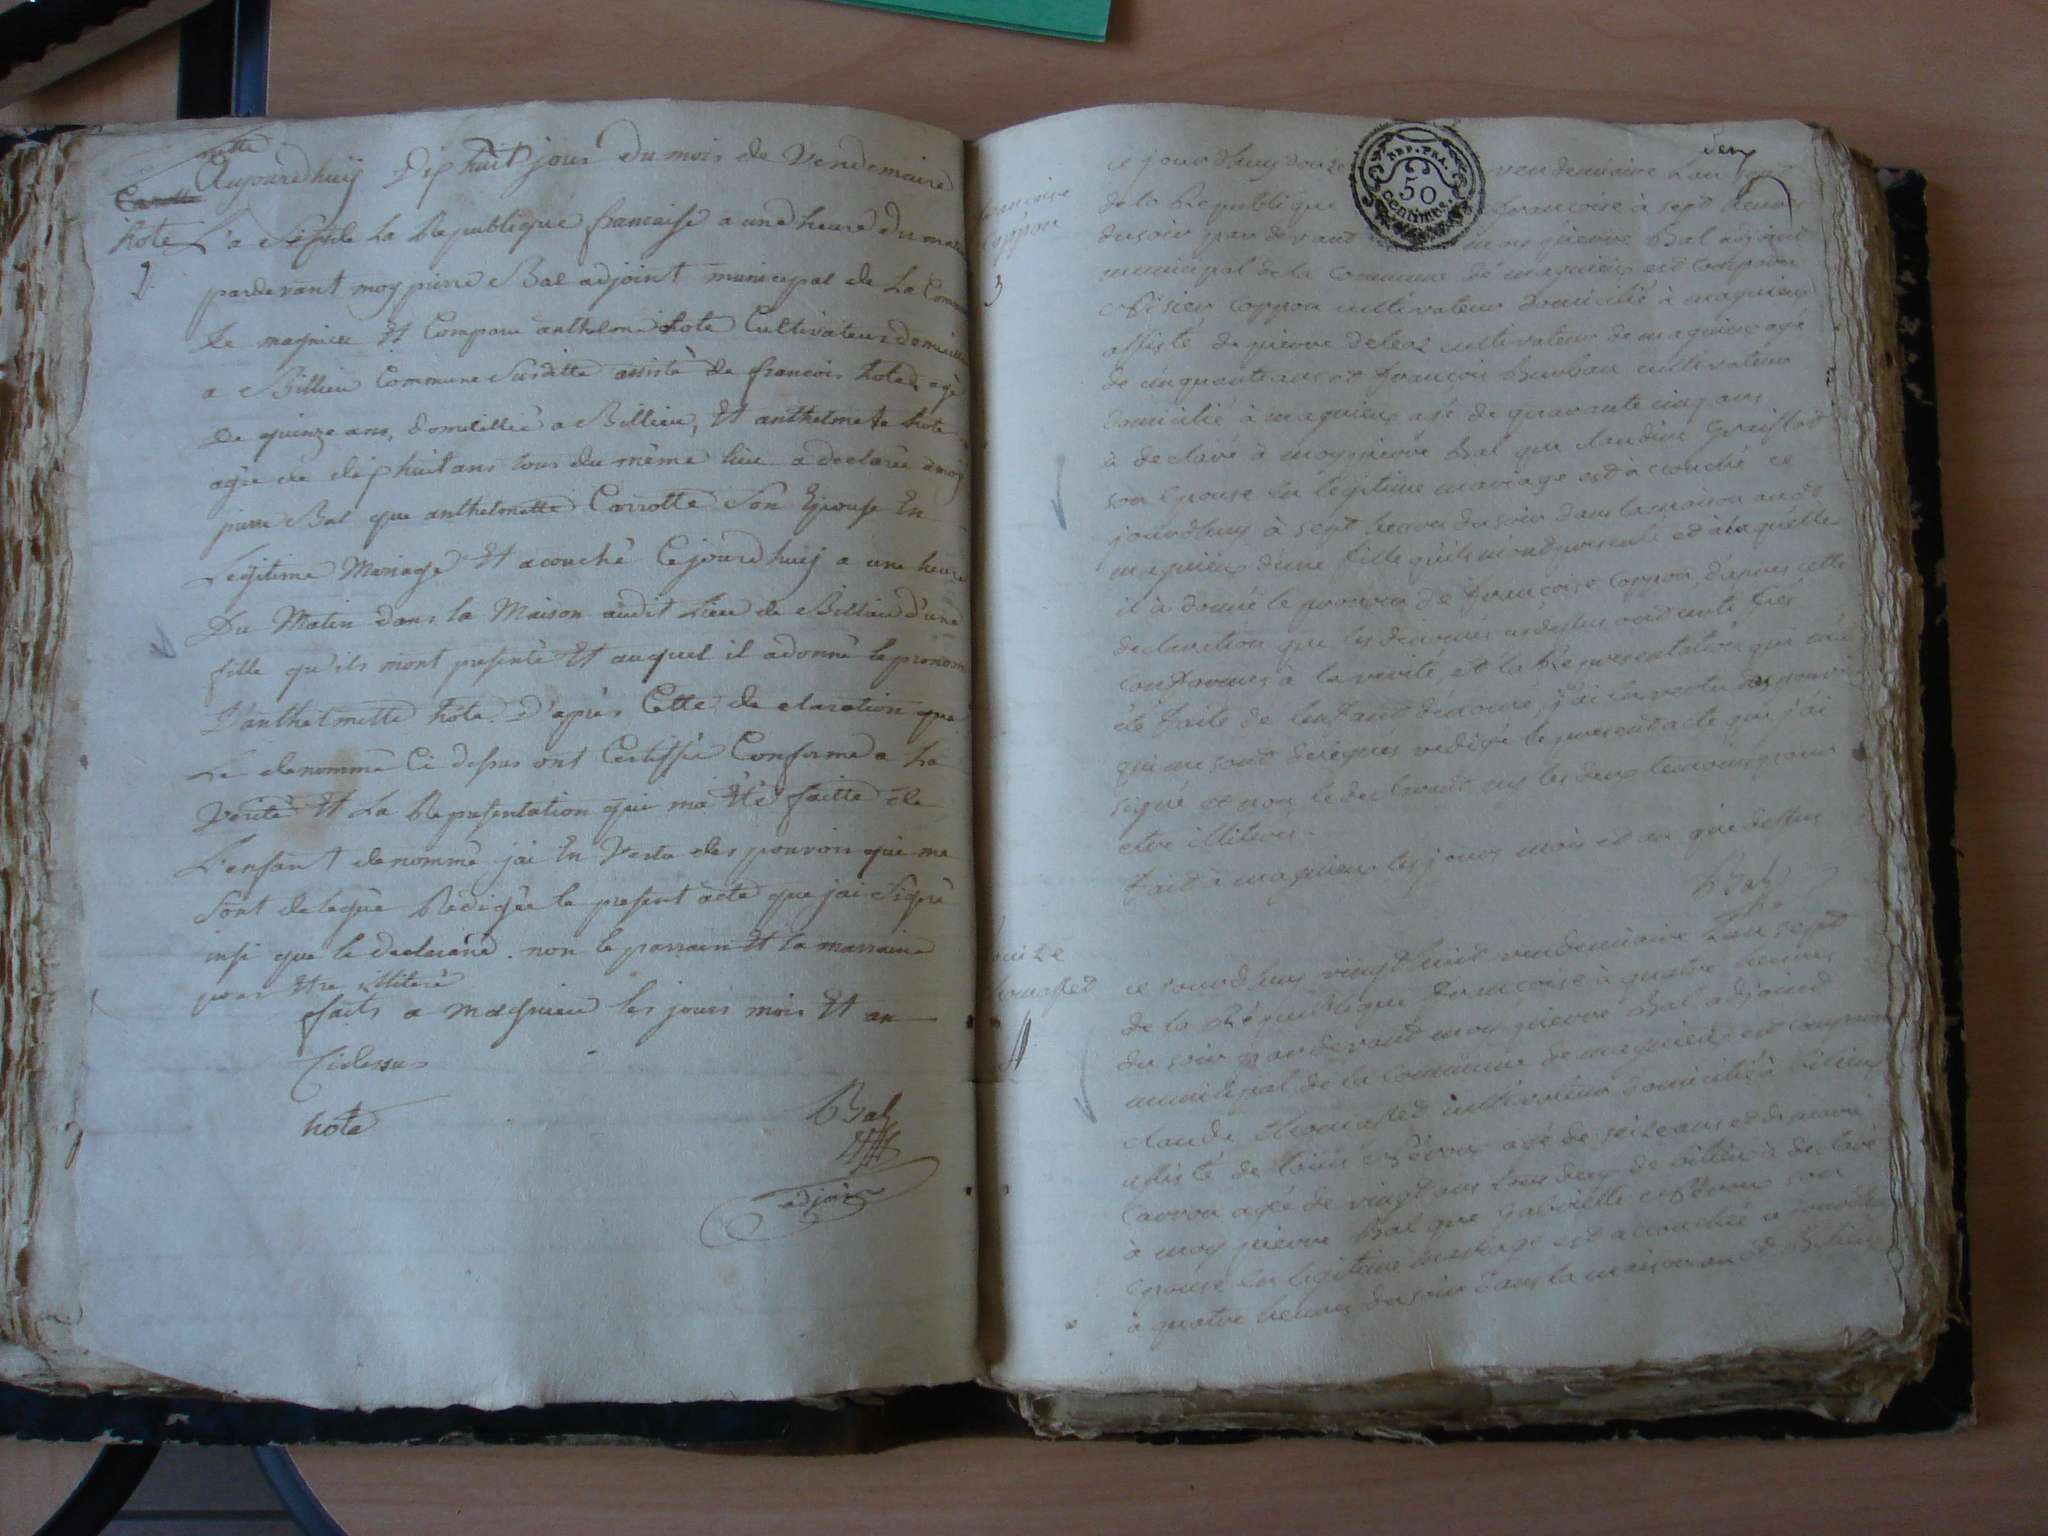 Aujourdhuij Dix huit jour du mois de Vendemiaire
Carrotte
hote L'a Sept de La Republique francaise a une heure du matin
2
pardevant moy pierre Bal adjoint municipal de La Commune
de magnieu Et Comparu anthelme hote Cultivateur domicillié
a Billieu Commune Susditte assisté de francois hote agé
De quinze ans, domicillié a Billieu, Et anthelmette hote
agée de dix huit ans tous du même lieu a declaré a moy
pierre Bal que anthelmette Carrotte Son Epouse En
Legitime Mariage Et acouché Cejourdhuij a une heure
Du Matin dans la Maison audit Lieu de Billieu d'une
fille qu'ils mont presenté Et auquel il adonné le prenom
D'anthelmette hote D'après Cette de claration que
Le denommé Ci dessus ont Certiffié Conforme a La
Verité Et La Representation qui ma Eté faitte de
L'enfant denommé jai En Vertu des pouvoir que me
Sont delegué Redigée le present acte que jai Signé
insi que le declarand. non le parrain Et la marraine
pour Etre illiteré
faits a Magnieu les jours mois Et an
Cidessus
hote
Bal
adjoint
deux
REP. FRA.
50
centimes.
ce jourdhuy douze vendemiaire L'an sept
francoise
coppon
3
de la Republique francoise à sept heures
du soir par devant moy pierre Bal adjoint
municipal de la commune de magnieux est comparu
coppon cultivateur domicilié à magnieux
assisté de pierre cultivateur de magnieux agé
de cinquante ans et françois Burban cultivateur
domicilié à magnieux agé de quarante cinq ans
à declaré à moy pierre Bal que claudine
son epouse en legitime mariage est à couché ce
jourdhuy à sept heures du soir dans la maison audt
magnieux d'une fille quils mont presenté et à laquelle
il à donné le prenom de francoise coppon, d'apres cette
declaration que les denomés cy dessus ont certifiés
conformes à la verité et la Representation qui m'a
été faite de lenfant denomé, j'ai en vertu des pouvoirs
qui me sont delegués redigé le present acte que j'ai
signé et non le declarant ny les deux temoins pour
etre illiterés.
fait à magnieux les jours mois et an que dessus
Bal
Louise
4
ce jourdhuy vingt huit vendemiaire L'an sept
de la Republique francoise à quatre heures
du soir par devant moy pierre Bal adjoint
municipal de la commune de magnieux est comparu
claude cultivateur domicilié à
assisté de louis agé de seize ans et de marie
carron agée de vingt ans tous deux de à declaré
à moy pierre Bal que gabrielle son
epouse en legitime mariage est accouchée ce jourdhuy
à quatre heures du soir dans la maison audt